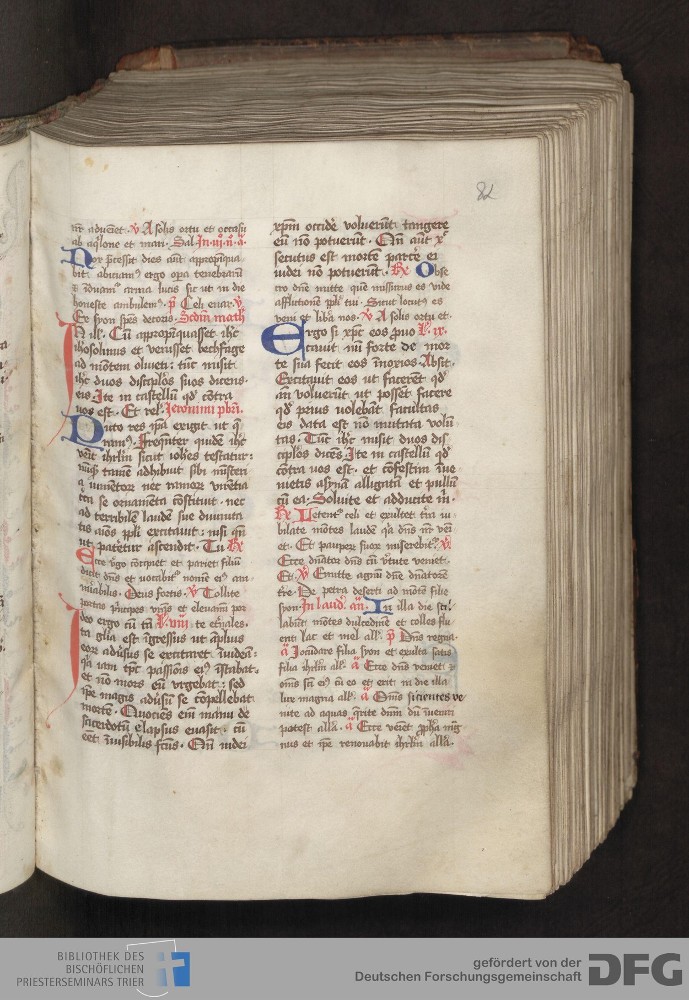 82
nr̄ adueniet · v̄ A solis ortu et occasu
ab aq̄lone et mari · Sal In · iij · n̄ · a̅ ·
Nox p̄cessit dies aūt appropīqua
bit abiciamꝰ ergo opa tenebrarū
⁊ īduamꝰ arma lucis sic ut in die
honeste ambulemꝰ · p̄ Celi enar · v̄
Ex syon spēs decoris · Scdm̄ math
IN ill · Cū appropīquasset ihc̄
iherosolimis et venisset bethfage
ad mōtem oliueti : tūc misit
ihc̄ duos disciplōs suos dicens
eis · Ite in castellū qd̄ cōtra
uos est · Et rel · Jeronimi pbri ·
Puto res ip̄a exigit ut q̄
ramꝰ · Freq̄nter quidē ihc̄
venit ihrlm̄ sicut ioh̄es testatur :
nūq̄ tamē adhibuit sibi mīsteri
a iumētor nec ramor virētia
se ornamēta cōstituit · nec
ad terribilē laudē sue diuinita
tis aīos pp̄li excitauit : nisi qn̄
ut pateretur ascendit · Tu Rx
Ecce v̄go cōcipiet et pariet filiū
dicit dn̄s et vocabit nomē eiꝰ am
mirabilis · Deus fortis · v̄ Tollite
portas p̄ncipes vr̄as et eleuamī por
Ideo ergo cū tn̄ L · viii · te et̄nales ·
ta glīa est īgressus ut ap̄lius
eor adūsus se excitaret īuidiā :
q̄a iam tp̄c passiōis eiꝰ īstabat ·
et nō mors eū vrgebat : sed
ip̄e magis adūsū se cōpellebat
mortē · Quociēs em̄ manū de
sacerdotū elapsus euasit · cū
eēt īuisibilis fc̄us · Qn̄ iudei
xpm̄ occidē voluerūt · tangere
eū nō potuerūt · Qn̄ aūt xꝰ
secutus est mortē parcē ei
iudei nō potuerūt · Rx Obse
cro dn̄e mitte quē missurus es vide
afflictionē pp̄li tui · Sicut locutꝰ es
veni et libā nos · v̄ A solis ortu et ·
Ergo si xp̄c eos p̄uo L · ix ·
cauit nū forte de mor
te sua fecit eos īnoxios · Absit ·
Excitauit eos ut facerēt qd̄
an̄ voluerūt ut posset facere
qd̄ prius volebāt facultas
eis data est nō mutata volū
tas · Tūc ihc̄ misit duos dis
ciplōs dicēs · Ite in castellū qd̄
cōtra vos est · et cōfestim īue
nietis asynā alligatā et pullū
cū ea · Soluite et adducite m̄ ·
Rx Letent celi et exultet t̄ra iu
bilate mōtes laudē q̄a dn̄s nr̄ veni
et · Et pauper suor miserebit · v̄
Ecce dn̄ator dn̄s cū v̄tute veniet ·
Et · v̄ Emitte agnū dn̄e dn̄atorē
tre · De petra deserti ad mōtē filie
syon · In laud · an̄ · In illa die stil
labūt mōtes dulcedinē et colles flu
ent lac et mel all · p̄ Dn̄s regna ·
a̅ Iocūdare filia syon et exulta satis
filia ihrlm̄ all · a̅ Ecce dn̄s veniet ⁊
om̄s sc̄i eiꝰ cū eo et erit in die illa
lux magna all · a̅ Om̄s sicientes ve
nite ad aquas q̄rite dn̄m dū īueniri
potest alla · a̅ Ecce veniet ꝓpha mag
nus et ip̄e renouabit ihrlm̄ alla ·
BIBLIOTHEK DES
BISCHÖFLICHEN
PRIESTERSEMINARS TRIER
gefördert von der
Deutschen Forschungsgemeinschaft
DFG